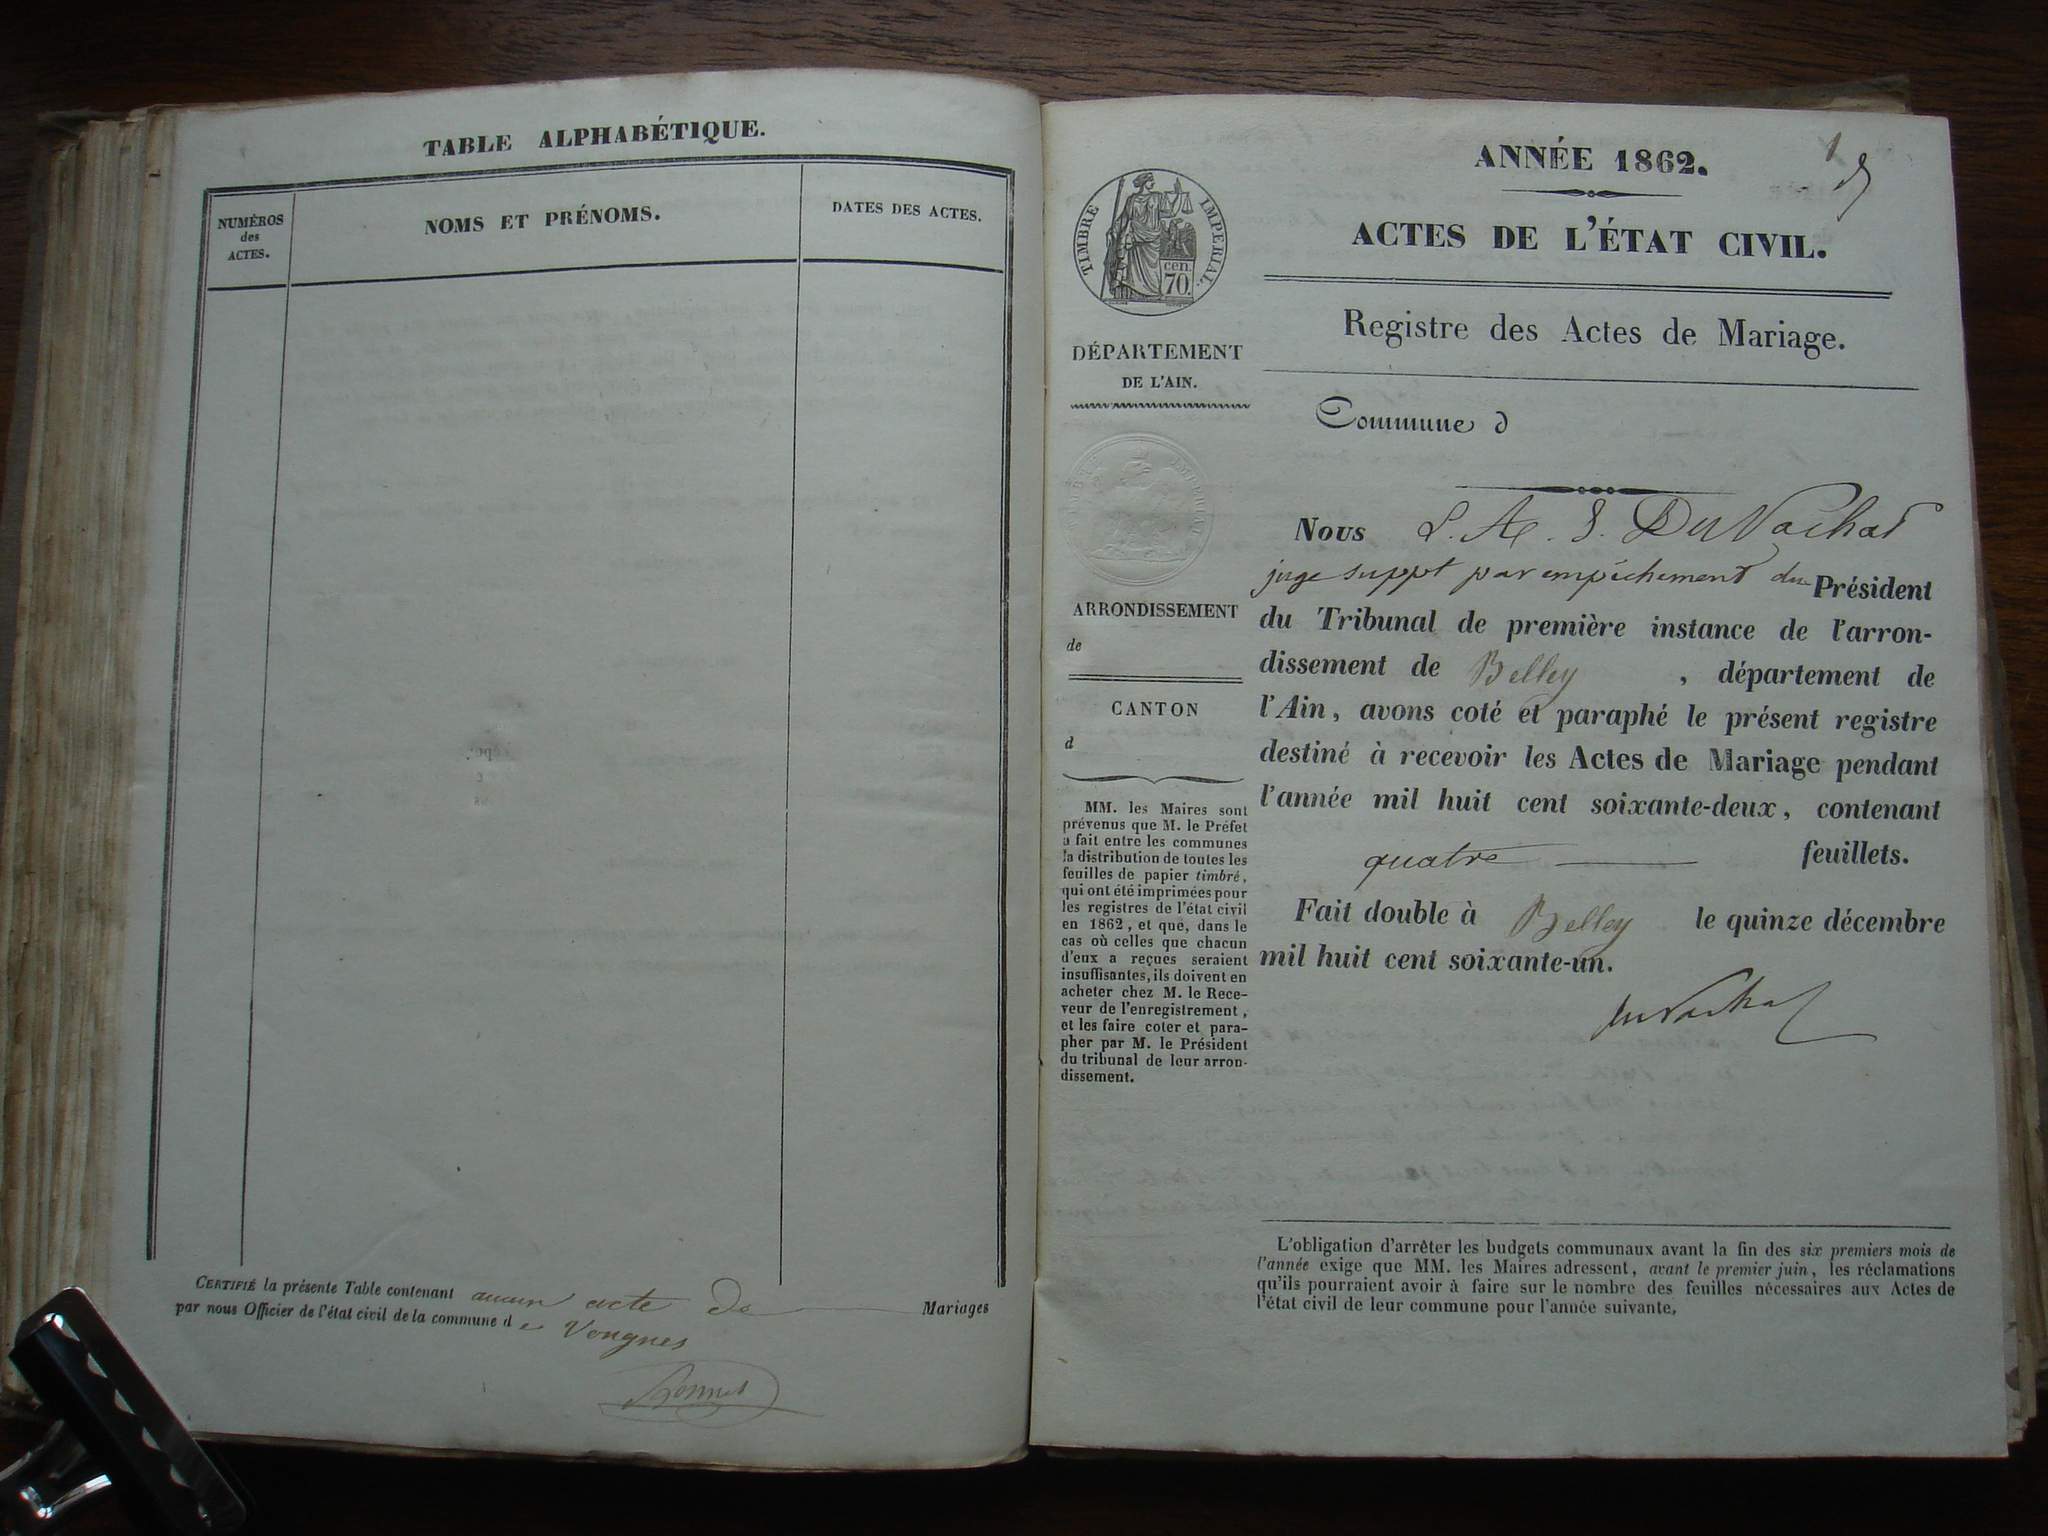 TABLE ALPHABÉTIQUE.
NUMÉROS
des
ACTES.
NOMS ET PRÉNOMS.
DATES DES ACTES.
CERTIFIÉ la présente Table contenant aucun acte de Mariages
par nous Officier de l'état civil de la commune de Vongnes
Bonnet
1
TIMBRE IMPERIAL.
cen.
70.
DÉPARTEMENT
DE L'AIN.
ARRONDISSEMENT
de
CANTON
d
MM. les Maires sont
prévenus que M. le Préfet
a fait entre les communes
la distribution de toutes les
feuilles de papier timbré,
qui ont été imprimées pour
les registres de l'état civil
en 1862, et que, dans le
cas où celles que chacun
d'eux a reçues seraient
insuffisantes, ils doivent en
acheter chez M. le Rece-
veur de l'enregistrement,
et les faire coter et para-
pher par M. le Président
du tribunal de leur arron-
dissement.
ANNÉE 1862.
ACTES DE L'ÉTAT CIVIL.
Registre des Actes de Mariage.
Commune d
Nous L. A. S. Du Vachat
juge suppt par empêchement du Président
du Tribunal de première instance de l'arron-
dissement de Belley, département de
l'Ain, avons coté et paraphé le présent registre
destiné à recevoir les Actes de Mariage pendant
l'année mil huit cent soixante-deux, contenant
quatre feuillets.
Fait double à Belley le quinze décembre
mil huit cent soixante-un.
du Vachat
L'obligation d'arrêter les budgets communaux avant la fin des six premiers mois de
l'année exige que MM. les Maires adressent, avant le premier juin, les réclamations
qu'ils pourraient avoir à faire sur le nombre des feuilles nécessaires aux Actes de
l'état civil de leur commune pour l'année suivante.